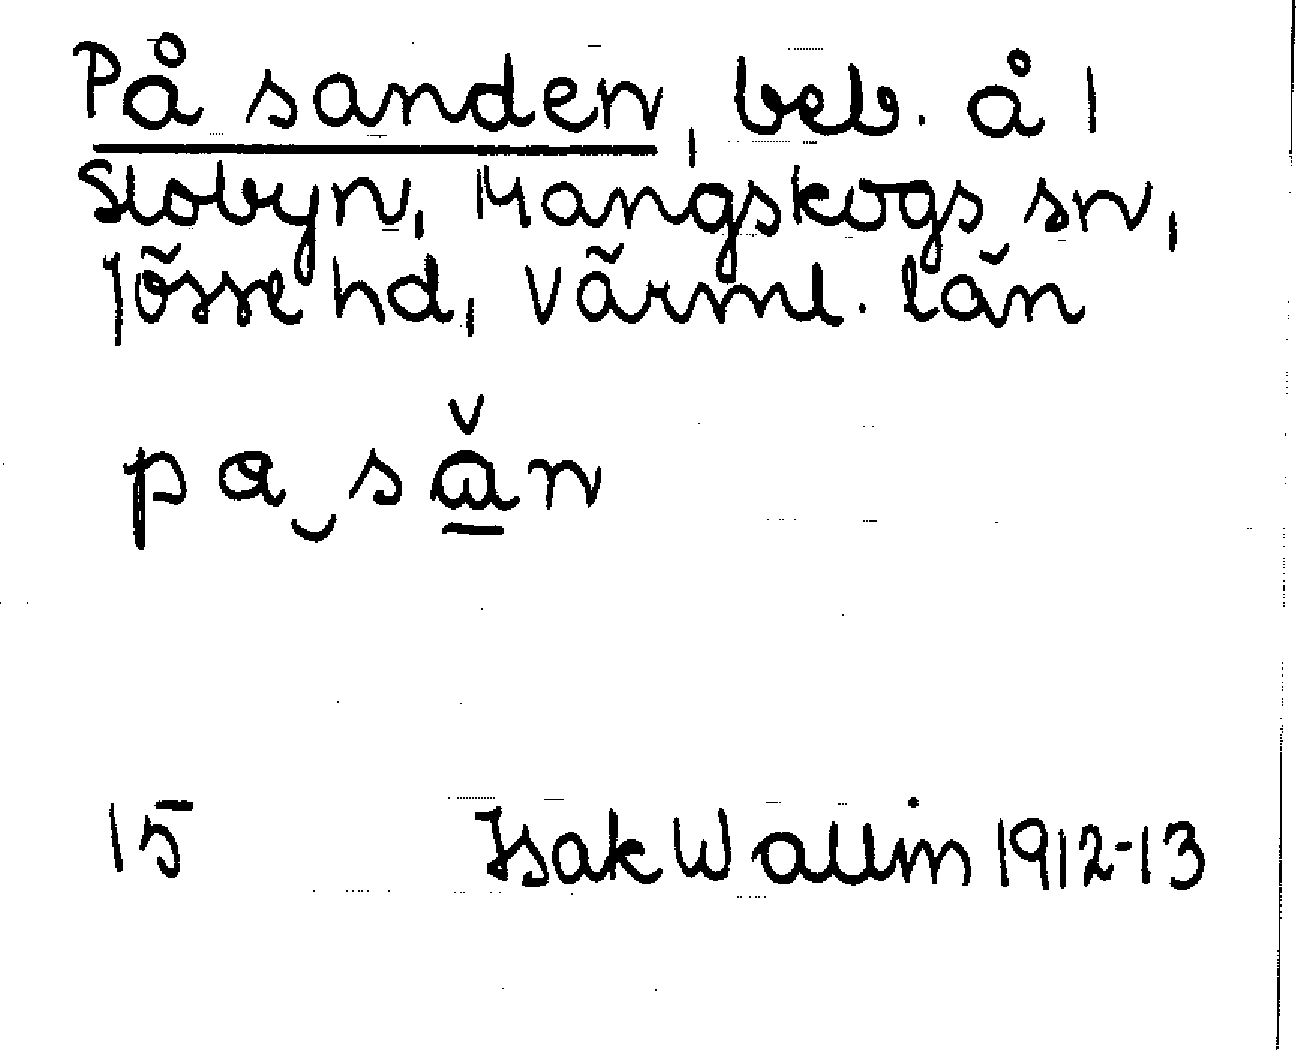 På sanden, beb. å 1
Slobyn, Mangskogs sn,
Jösse hd, Värml. län
pa‿sǎn
15 Isak Wallin 1912-13